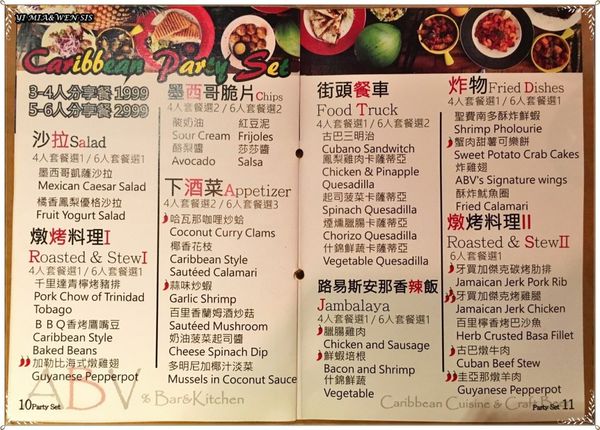 YI MIA&WEN SIS
Caribbean Party Set
3-4人分享餐 1999
5-6人分享餐 2999
沙拉Salad
4人套餐選1 / 6人套餐選1
墨西哥凱薩沙拉
Mexican Caesar Salad
橘香鳳梨優格沙拉
Fruit Yogurt Salad
燉烤料理I
Roasted & StewI
4人套餐選1 / 6人套餐選1
千里達青檸烤豬排
Pork Chow of Trinidad
Tobago
BBQ香烤鷹嘴豆
Caribbean Style
Baked Beans
加勒比海式燉雞翅
Guyanese Pepperpot
10 Party Set
墨西哥脆片Chips
4人套餐選2 / 6人套餐選2
酸奶油 紅豆泥
Sour Cream Frijoles
酪梨醬 莎莎醬
Avocado Salsa
下酒菜Appetizer
4人套餐選2 / 6人套餐選3
哈瓦那咖哩炒蛤
Coconut Curry Clams
椰香花枝
Caribbean Style
Sautéed Calamari
蒜味炒蝦
Garlic Shrimp
百里香蘭姆酒炒菇
Sautéed Mushroom
奶油菠菜起司醬
Cheese Spinach Dip
多明尼加椰汁淡菜
Mussels in Coconut Sauce
ABV
Bar&Kitchen
街頭餐車
Food Truck
4人套餐選1 / 6人套餐選2
古巴三明治
Cubano Sandwitch
鳳梨雞肉卡薩蒂亞
Chicken & Pinapple
Quesadilla
起司菠菜卡薩蒂亞
Spinach Quesadilla
煙燻臘腸卡薩蒂亞
Chorizo Quesadilla
什錦鮮蔬卡薩蒂亞
Vegetable Quesadilla
路易斯安那香辣飯
Jambalaya
4人套餐選1 / 6人套餐選1
臘腸雞肉
Chicken and Sausage
鮮蝦培根
Bacon and Shrimp
什錦鮮蔬
Vegetable
炸物Fried Dishes
4人套餐選1 / 6人套餐選1
聖費南多酥炸鮮蝦
Shrimp Pholourie
蟹肉甜薯可樂餅
Sweet Potato Crab Cakes
炸雞翅
ABV's Signature wings
酥炸魷魚圈
Fried Calamari
燉烤料理II
Roasted & StewII
6人套餐選1
牙買加傑克碳烤肋排
Jamaican Jerk Pork Rib
牙買加傑克烤雞腿
Jamaican Jerk Chicken
百里檸香烤巴沙魚
Herb Crusted Basa Fillet
古巴燉牛肉
Cuban Beef Stew
圭亞那燉羊肉
Guyanese Pepperpot
Caribbean Cuisine & Craft Beer
Party Set 11